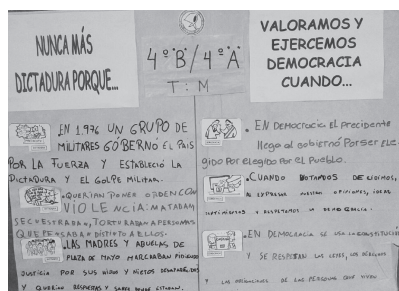 NUNCA MÁS
DICTADURA PORQUE...
4º"B"/4º"A"
T:M
VALORAMOS Y
EJERCEMOS
DEMOCRACIA
CUANDO...
. EN 1.976 UN GRUPO DE
MILITARES GOBERNÓ EL PAIS
POR LA FUERZA Y ESTABLECIÓ LA
DICTADURA Y EL GOLPE MILITAR.
. QUERIAN PONER ORDEN CON
VIOLENCIA: MATABAN,
SECUESTRABAN, TORTURABAN A PERSONAS
QUE PENSABAN DISTINTO A ELLOS.
. LAS MADRES Y ABUELAS DE
PLAZA DE MAYO MARCHABAN PIDIENDO
JUSTICIA POR SUS HIJOS Y NIETOS DESAPARECIDOS
Y QUERIAN RESPUESTAS Y SABER DONDE ESTABAN.
. EN DEMOCRACIA El precidente
llego al gobiernó Por ser ele-
gido Por elegido por el Pueblo.
. CUANDO BOTAMOS DECIDIMOS,
AL EXPRESAR NUESTRAS OPINIONES, IDEAS
Y RESPETAMOS LA DEMOCRACIA.
. EN DEMOCRACIA SE USA LA CONSTITUCIÓN
Y SE RESPETAN LAS LEYES, LOS DERECHOS
Y LAS OBLIGACIONES DE LAS PERSONAS QUE VIVEN